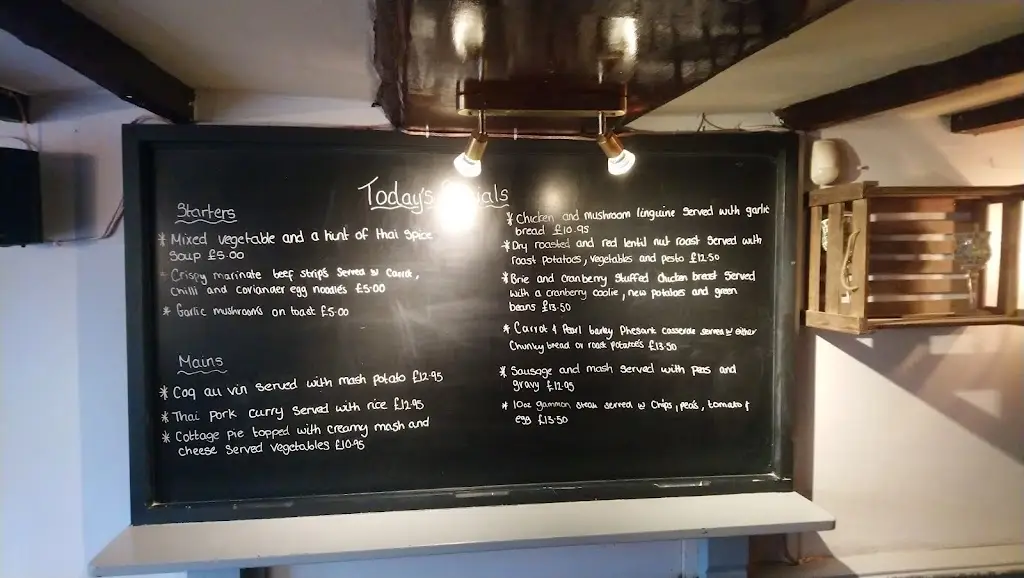 Today's
Starters
* Mixed vegetable and a hint of thai spice
soup £5.00
* Crispy marinate beef strips served w carrot,
chilli and coriander egg noodles £5.00
* Garlic mushrooms on toast £5.00
Mains
* Coq au vin served with mash potato £12.95
* Thai pork curry served with rice £12.95
* Cottage pie topped with creamy mash and
cheese served vegetables £10.95
* Chicken and mushroom linguine served with garlic
bread £10.95
* Dry roasted and red lentil nut roast served with
roast potatoes, vegetables and pesto £12.50
* Brie and cranberry stuffed chicken breast served
with a cranberry coolie, new potatoes and green
beans £13.50
* Carrot & Pearl barley Phesant casserole served w either
Chunky bread or roast potatoes £13.50
* Sausage and mash served with peas and
gravy £12.95
* 10oz gammon steak served w Chips, peas, tomato &
egg £13.50